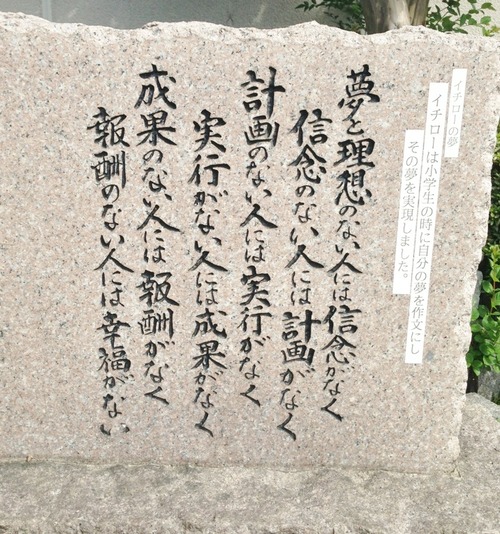 イチローの夢
イチローは小学生の時に自分の夢を作文にし
その夢を実現しました。
夢と理想のない人には信念がなく
信念のない人には計画がなく
計画のない人には実行がなく
実行がない人には成果がなく
成果のない人には報酬がなく
報酬のない人には幸福がない